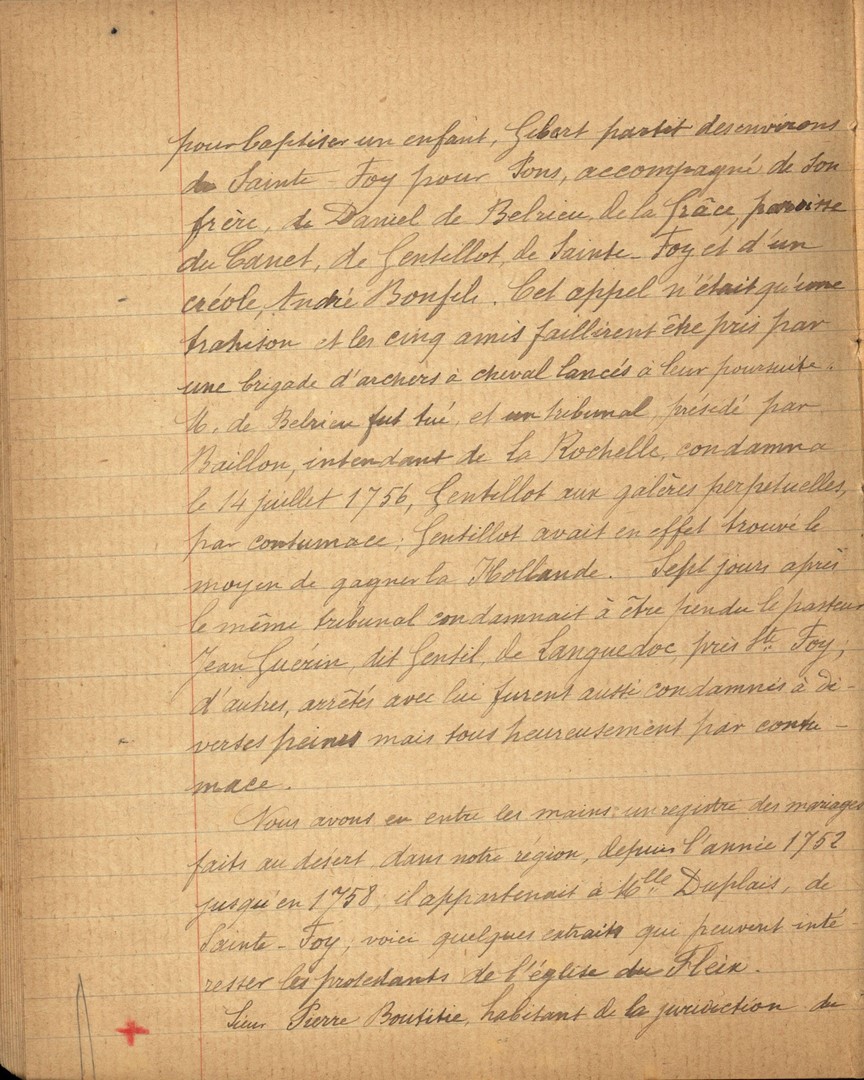 pour baptiser un enfant, Gibert partit des environs
de Sainte-Foy pour Pons, accompagné de son
frère, de Daniel de Belrieu, de la Grâce, paroisse
du Canet, de Gentillot, de Sainte-Foy et d'un
créole, André Bonfils. Cet appel n'était qu'une
trahison et les cinq amis faillirent être pris par
une brigade d'archers à cheval lancés à leur poursuite.
M. de Belrieu fut tué, et un tribunal, présédé par
Baillon, intendant de la Rochelle, condamna
le 14 juillet 1756, Gentillot aux galères perpetuelles,
par contumace; Gentillot avait en effet trouvé le
moyen de gagner la Hollande. Sept jours après
le même tribunal condamnait à être pendu le pasteur
Jean Guérin, dit Gentil, de Languedoc, près Ste Foy;
d'autres, arrêtés avec lui furent aussi condamnés à di-
verses peines mais tous heureusement par contu-
mace.
Nous avons eu entre les mains un registre des mariages
faits au désert, dans notre région, depuis l'année 1752
jusqu'en 1758; il appartenait à Mlle Duplais, de
Sainte-Foy; voici quelques extraits que peuvent inté-
resser les protestants de l'église du Fleix.
Sieur Pierre Boutitie, habitant de la juridiction du